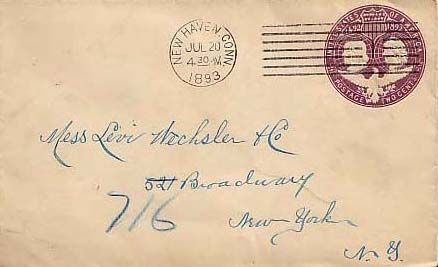 NEW HAVEN CONN.
JUL 20
4 30 PM
1893
UNITED STATES OF AMERICA
1492 1893
POSTAGE TWO CENTS
Mess Levi Wechsler & Co
521 Broadway
716
New York
N. Y.